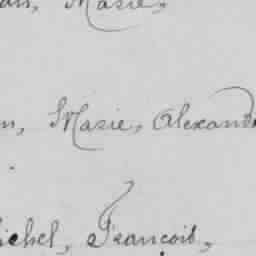 Marie,
Marie, Alexand
ichel, François,